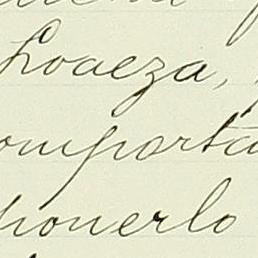 Loaeza,
omporta
ponerlo